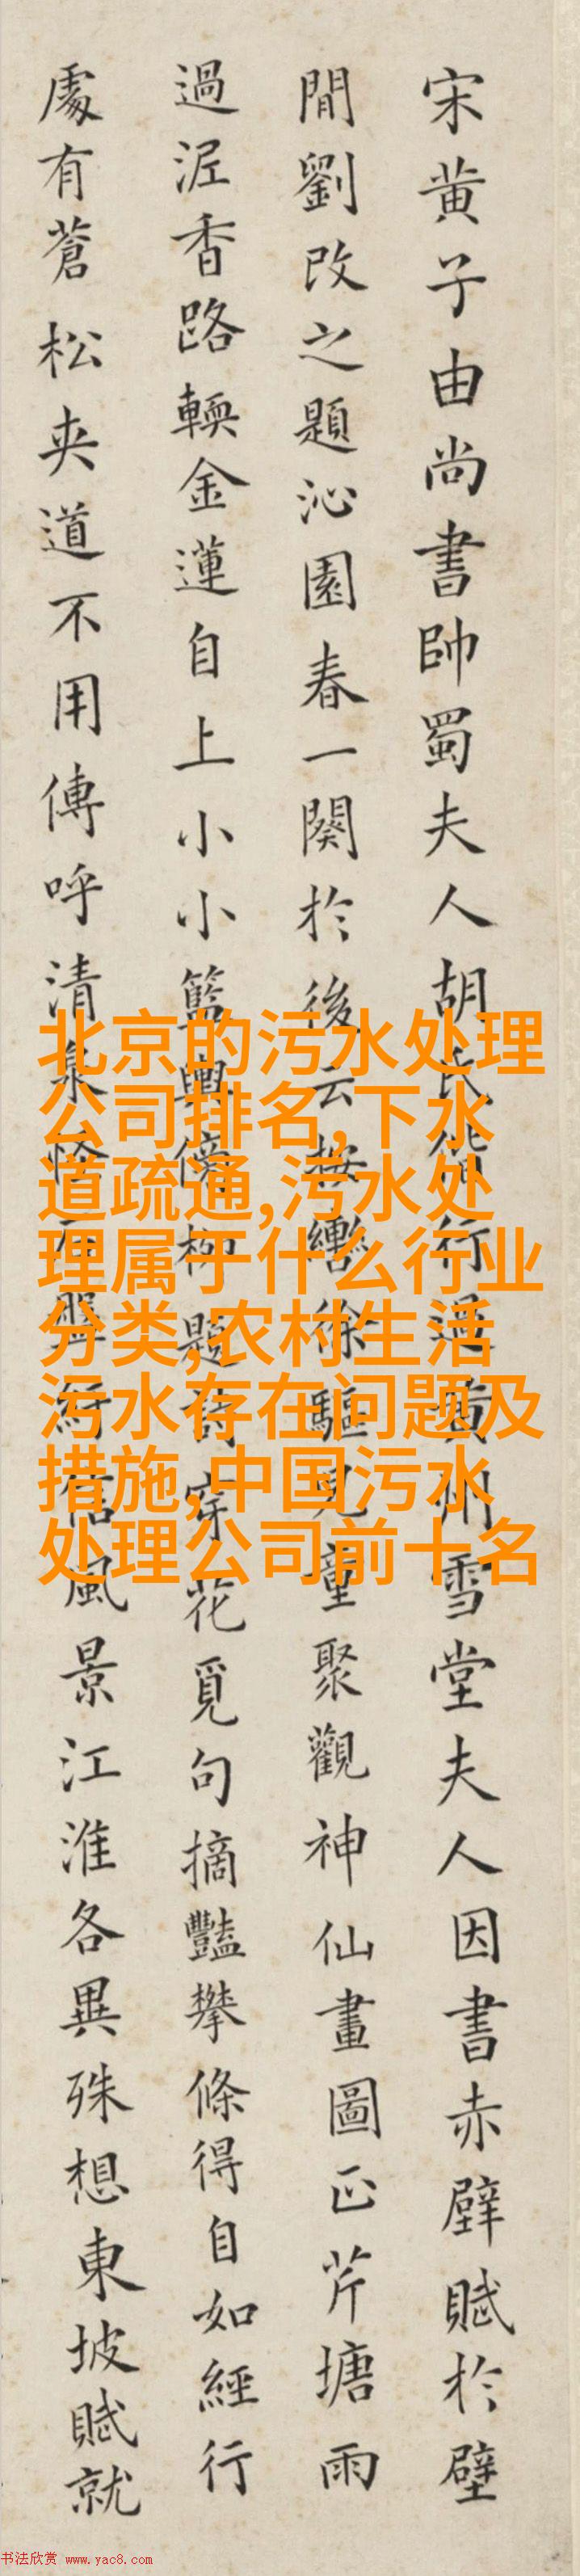 宋黄子由尚書帥蜀夫人胡氏偕行過黄州雪堂夫人因書赤壁賦於壁
間劉改之題沁園春一闋於後云按轡徐驅兒童聚觀神仙畫圖正芹塘雨
過泥香路輭金蓮自上小小籃輿傍柳題詩穿花覓句摘豔攀條得自如經行
處有蒼松夾道不用傳呼清泉怪石盤紆信風景江淮各異殊想東坡賦就
北京的污水处理
公司排名,下水
道疏通,污水处
理属于什么行业
分类,农村生活
污水存在问题及
措施,中国污水
处理公司前十名
书法欣赏 www.yac8.com